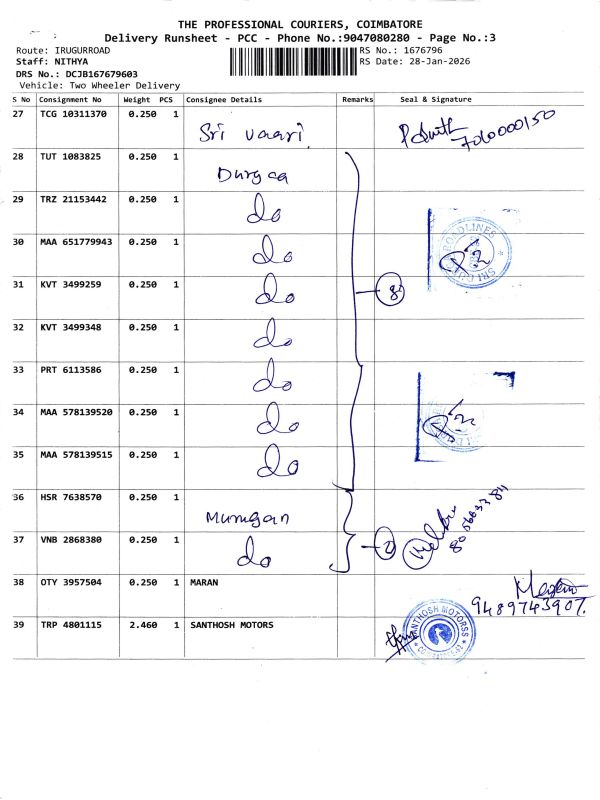 THE PROFESSIONAL COURIERS, COIMBATORE
Delivery Runsheet - PCC - Phone No.:9047080280 - Page No.:3
Route: IRUGURROAD
Staff: NITHYA
DRS No.: DCJB167679603
Vehicle: Two Wheeler Delivery
RS No.: 1676796
RS Date: 28-Jan-2026
S No Consignment No Weight PCS Consignee Details Remarks Seal & Signature
27 TCG 10311370 0.250 1 Sri vaari 7010000150
28 TUT 1083825 0.250 1 Durgaa
29 TRZ 21153442 0.250 1 do
30 MAA 651779943 0.250 1 do
31 KVT 3499259 0.250 1 do 8
32 KVT 3499348 0.250 1 do
33 PRT 6113586 0.250 1 do
34 MAA 578139520 0.250 1 do
35 MAA 578139515 0.250 1 do
36 HSR 7638570 0.250 1 Murugan
37 VNB 2868380 0.250 1 do 2
38 OTY 3957504 0.250 1 MARAN 9489743907.
39 TRP 4801115 2.460 1 SANTHOSH MOTORS SANTHOSH MOTORSS